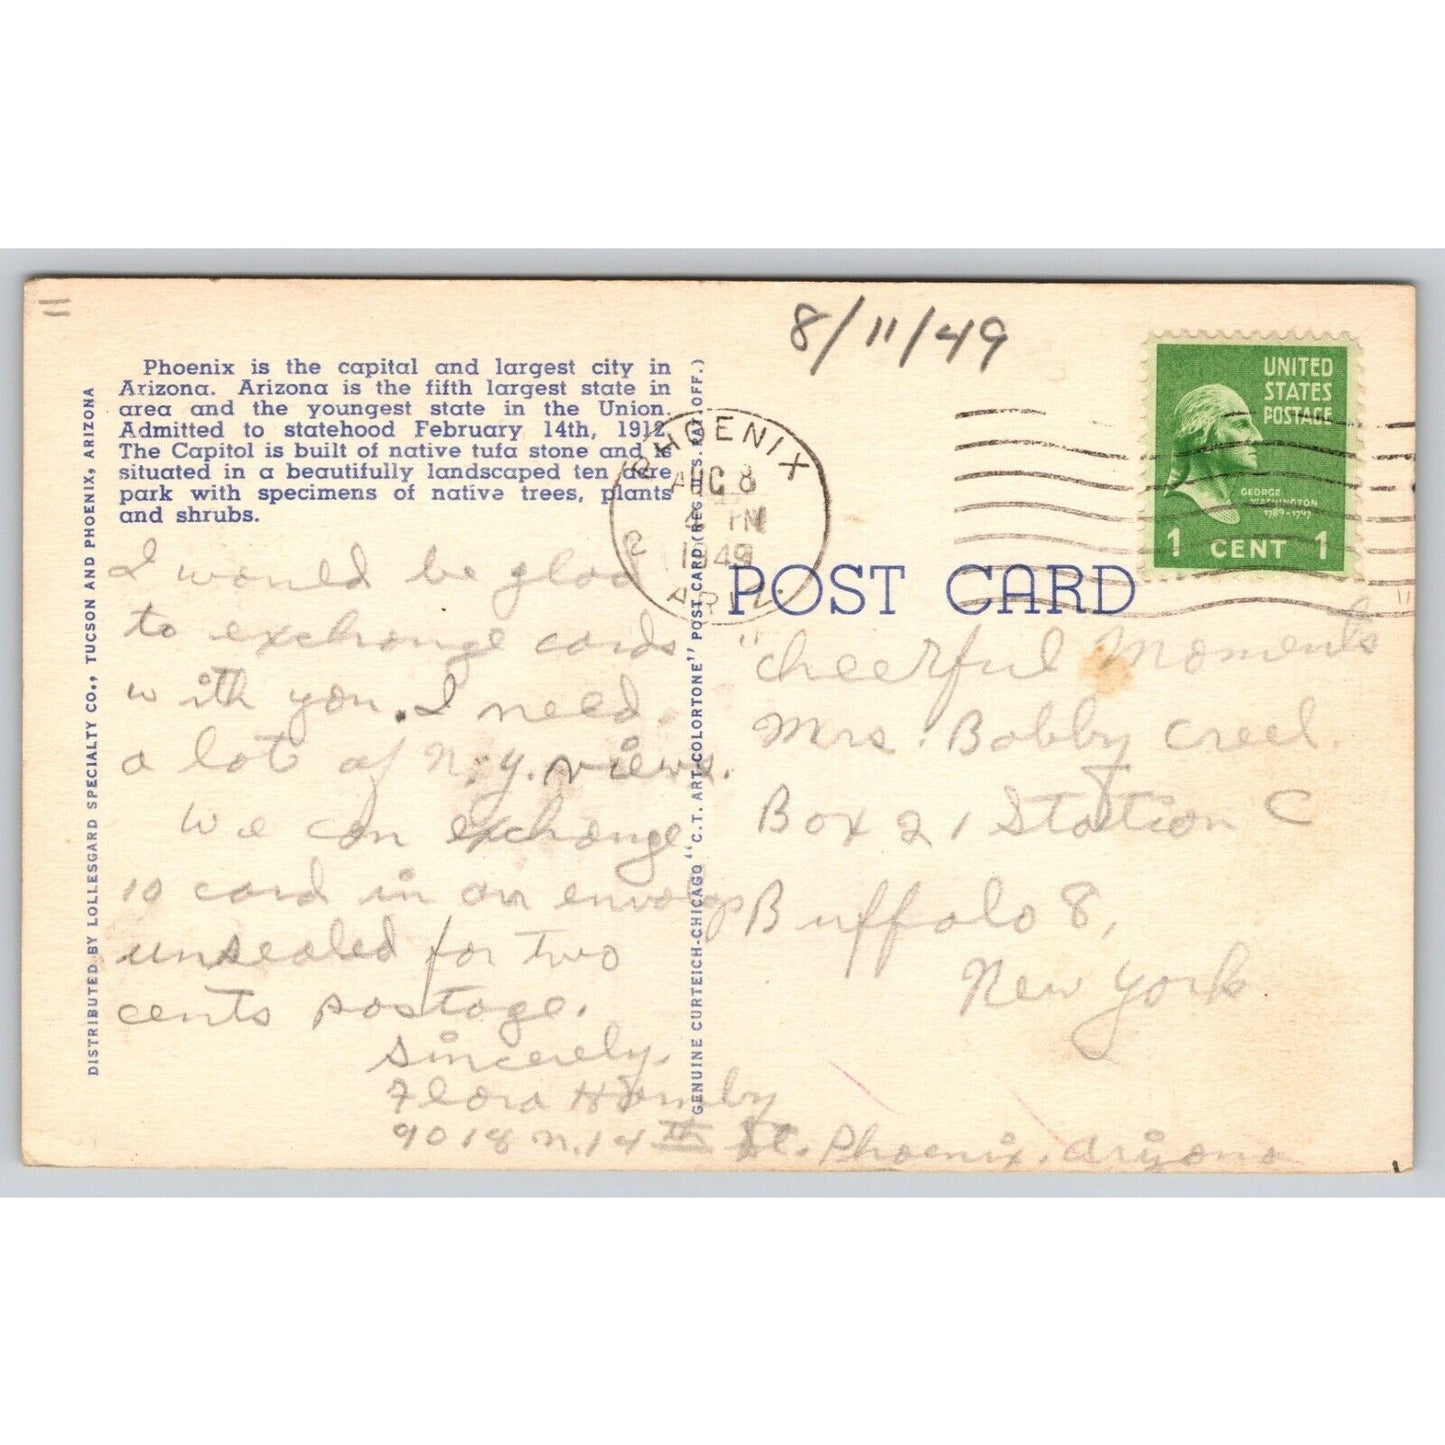 8/11/49
Phoenix is the capital and largest city in
Arizona. Arizona is the fifth largest state in
area and the youngest state in the Union.
Admitted to statehood February 14th, 1912.
The Capitol is built of native tufa stone and is
situated in a beautifully landscaped ten acre
park with specimens of native trees, plants
and shrubs.
I would be glad
to exchange cards
with you. I need
a lot of N.Y. views.
We can exchange
10 card in an envelop
unsealed for two
cents postage.
Sincerely.
Flora
9018 N. 14th St. Phoenix. Arizona
DISTRIBUTED BY LOLLESGARD SPECIALTY CO., TUCSON AND PHOENIX, ARIZONA
GENUINE CURTEICH-CHICAGO "C.T. ART-COLORTONE" POST CARD (REG. U.S. PAT. OFF.)
PHOENIX
AUG 8
4 PM
1949
ARIZ.
2
UNITED
STATES
POSTAGE
GEORGE
WASHINGTON
1789-1797
1 CENT 1
POST CARD
"Cheerful Moments"
Mrs. Bobby Creel.
Box 21 Station C
Buffalo 8,
New York